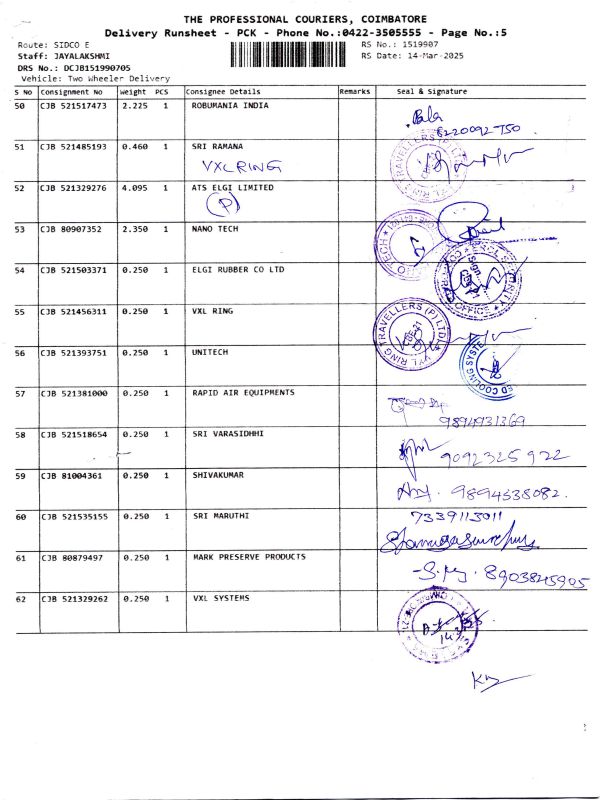 THE PROFESSIONAL COURIERS, COIMBATORE
Delivery Runsheet - PCK - Phone No.:0422-3505555 - Page No.:5
Route: SIDCO E RS No.: 1519907
Staff: JAYALAKSHMI RS Date: 14-Mar-2025
DRS No.: DCJB151990705
Vehicle: Two Wheeler Delivery
S NO Consignment No Weight PCS Consignee Details Remarks Seal & Signature
50 CJB 521517473 2.225 1 ROBUMANIA INDIA
51 CJB 521485193 0.460 1 SRI RAMANA
VXL RING
52 CJB 521329276 4.095 1 ATS ELGI LIMITED
(P)
53 CJB 80907352 2.350 1 NANO TECH
54 CJB 521503371 0.250 1 ELGI RUBBER CO LTD
55 CJB 521456311 0.250 1 VXL RING
VXL RING TRAVELLERS (P) LTD
56 CJB 521393751 0.250 1 UNITECH
57 CJB 521381000 0.250 1 RAPID AIR EQUIPMENTS
9894931369
58 CJB 521518654 0.250 1 SRI VARASIDHHI
9092325922
59 CJB 81004361 0.250 1 SHIVAKUMAR
9894538082.
60 CJB 521535155 0.250 1 SRI MARUTHI
7339113011
61 CJB 80879497 0.250 1 MARK PRESERVE PRODUCTS
8903845905
62 CJB 521329262 0.250 1 VXL SYSTEMS